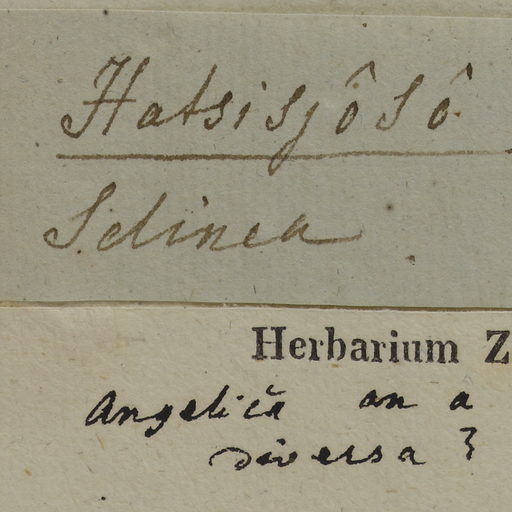 Hatsisjôsô.
Selinea
Herbarium Z
Angelica an a
diversa?